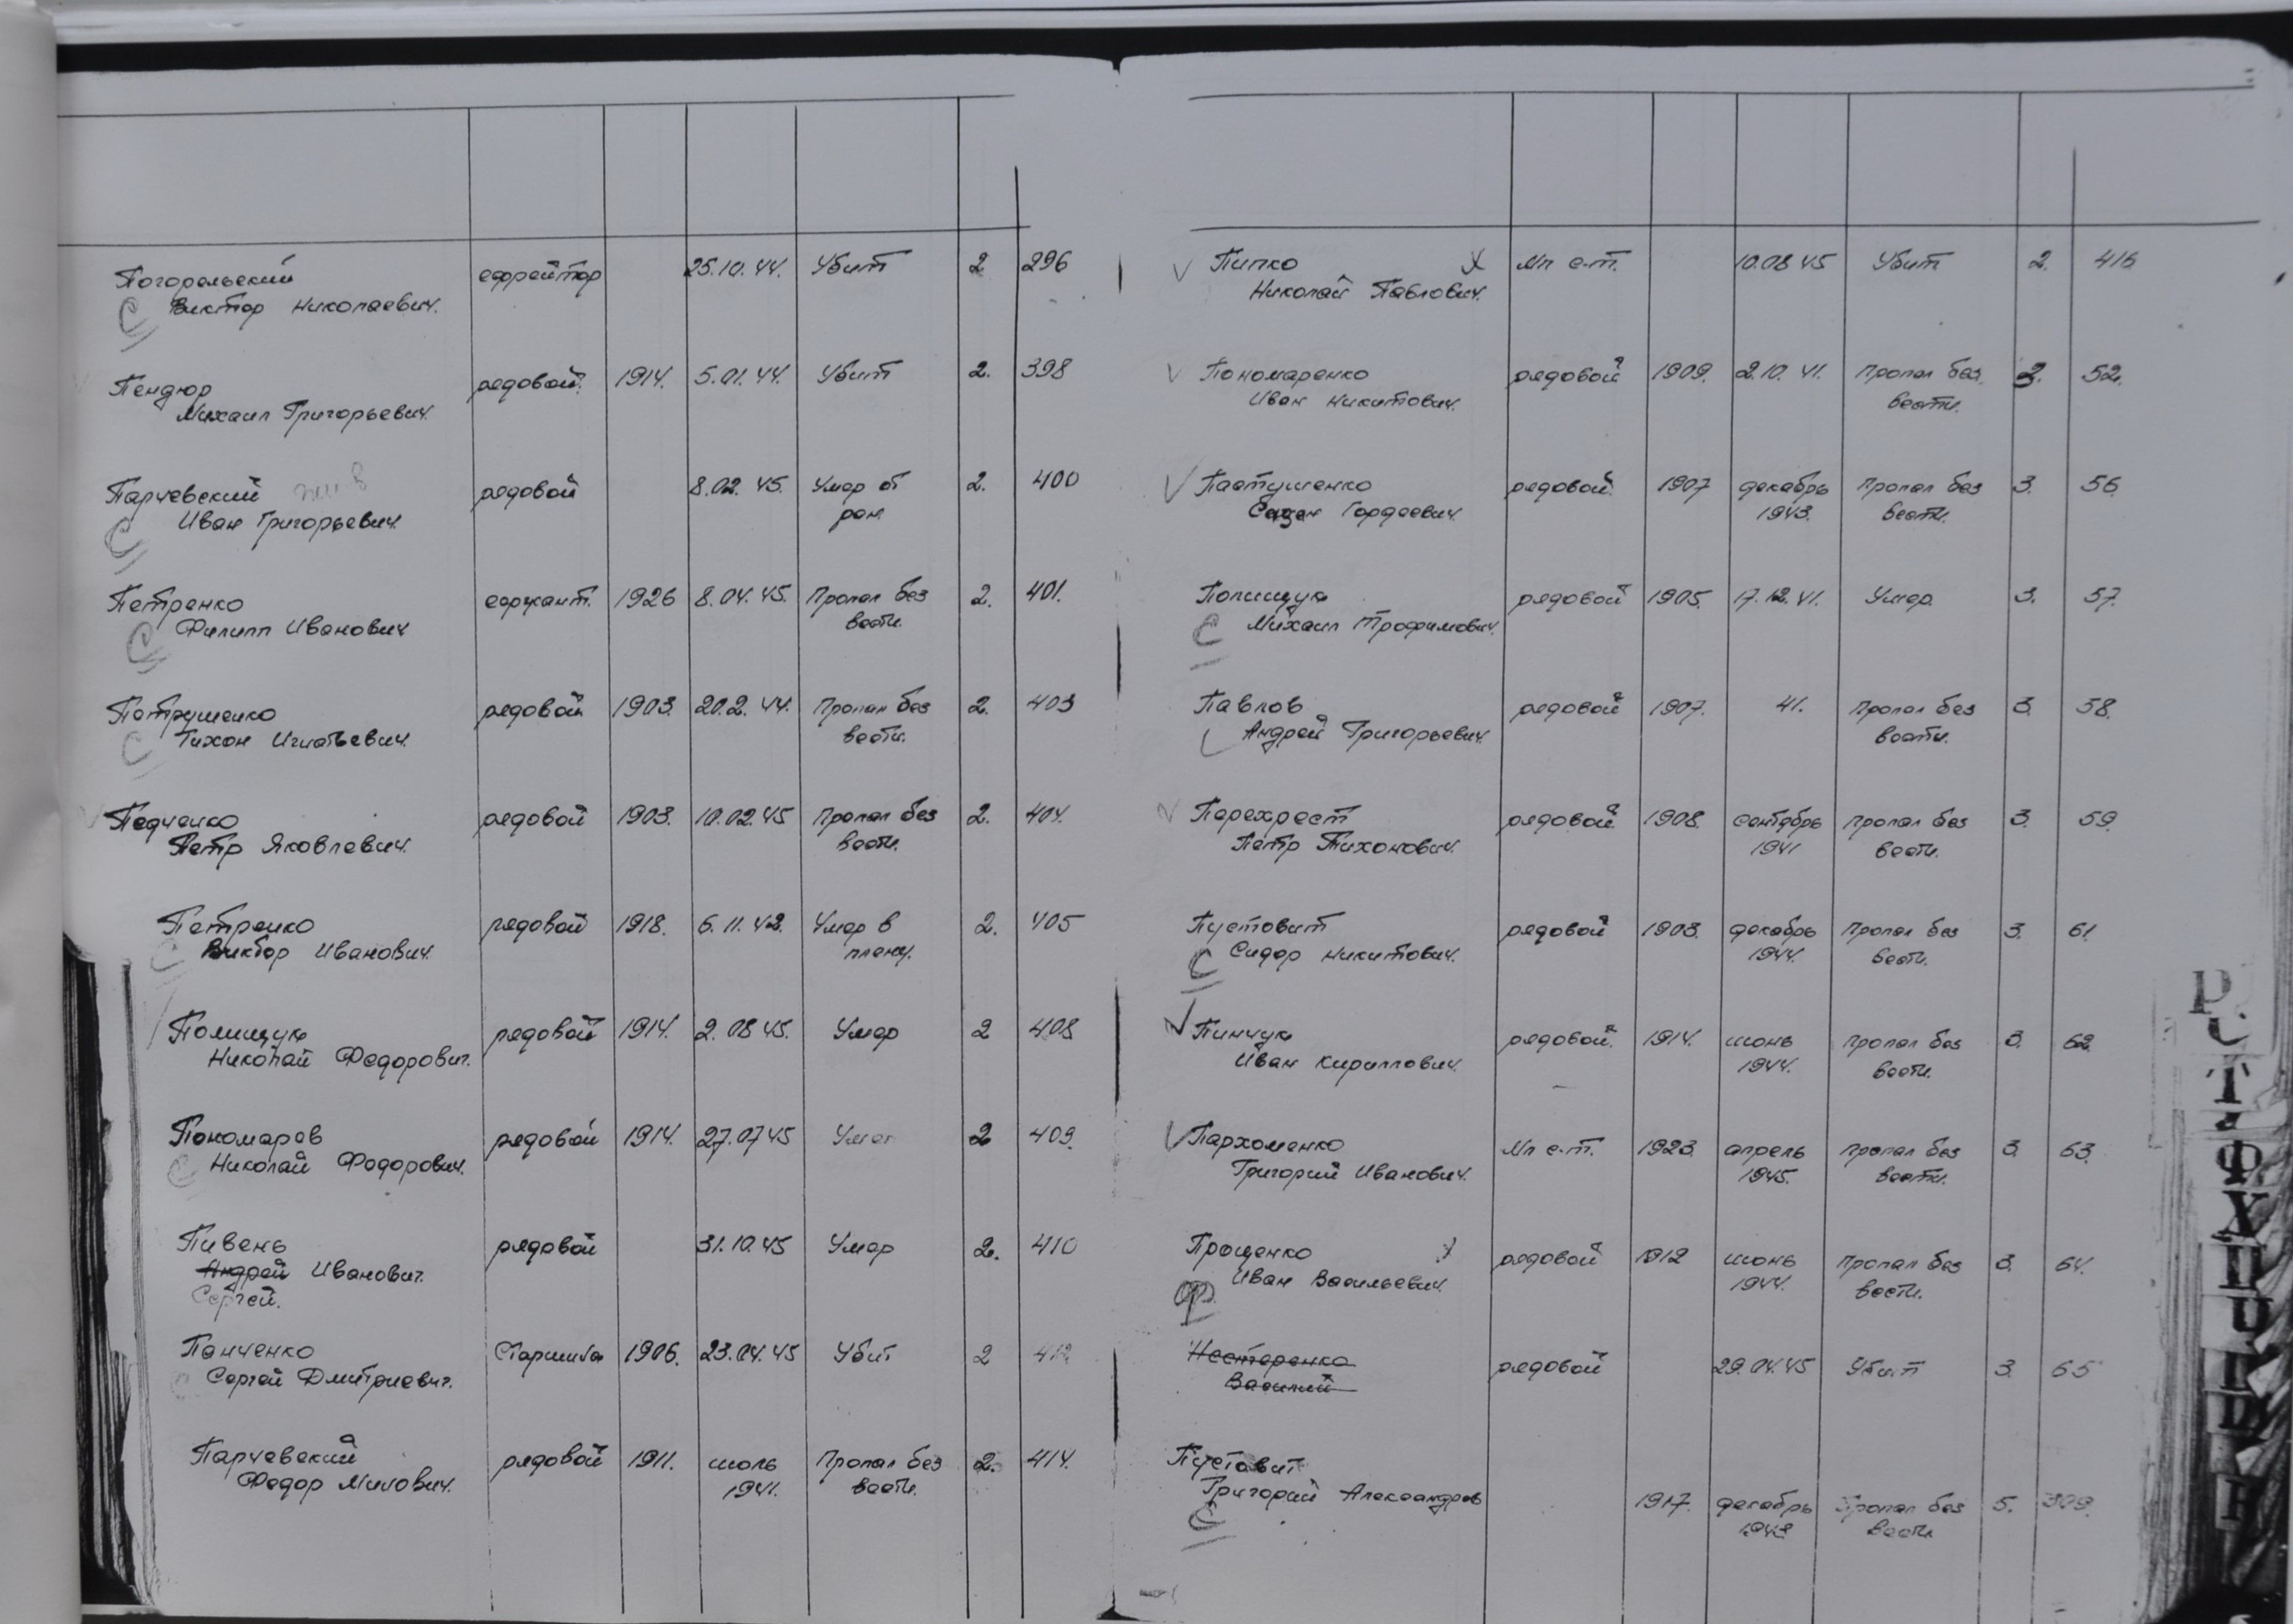 Погорельский ефрейтор 25.10.44. Убит 2 296
С Виктор Николаевич.
Пендюр рядовой. 1914. 5.01.44. Убит 2. 398
Михаил Григорьевич.
Парчевский рядовой 8.02.45. Умер от 2. 400
Иван Григорьевич. ран.
С
Петренко сержант. 1926 8.04.45. Пропал без 2. 401.
С Филипп Иванович вести.
Петрушенко рядовой. 1903. 20.2.44. Пропал без 2. 403
С Тихон Игнатьевич. вести.
Педченко рядовой 1903. 10.02.45 Пропал без 2. 404.
Петр Яковлевич. вести.
Петренко рядовой 1918. 6.11.42. Умер в 2. 405
С Виктор Иванович. плену.
Полищук рядовой 1914. 2.08.45. Умер 2 408
Николай Федорович.
Пономарев рядовой 1914. 27.07.45 Умер 2 409.
С Николай Федорович.
Пивень рядовой 31.10.45 Умер 2. 410
Андрей Иванович.
Сергей.
Панченко Старшина 1906. 23.04.45 Убит 2 412
С Сергей Дмитриевич.
Парчевский рядовой 1911. июль Пропал без 2. 414.
Федор Милович. 1941. вести.
V Пипко X Мл с-т. 10.08.45 Убит 2. 416
Николай Павлович.
V Пономаренко рядовой 1909. 2.10.41. Пропал без 3. 52.
Иван Никитович. вести.
V Пастушенко рядовой. 1907 декабрь Пропал без 3. 56
Гордеевич. 1943. вести.
Полищук рядовой 1905. 17.12.41. Умер. 3. 57.
С Михаил Трофимович.
Павлов рядовой 1907. 41. Пропал без 3. 58.
Андрей Григорьевич. вести.
V Перехрест рядовой. 1908. сентябрь Пропал без 3. 59.
Петр Тихонович. 1941 вести.
Пустовит рядовой 1903. декабрь Пропал без 3. 61.
С Сидор Никитович. 1944. вести.
V Пинчук рядовой. 1914. июнь Пропал без 3. 62.
Иван Кириллович. 1944. вести.
V Пархоменко Мл с-т. 1923. апрель Пропал без 3. 63.
Григорий Иванович. 1945. вести.
Проценко X рядовой 1912 июнь Пропал без 3. 64.
Ф Иван Васильевич. 1944. вести.
Нестеренко рядовой 29.04.45 Убит 3. 65
Василий
Пустовит
Григорий Александров 1917. декабрь Пропал без 5. 309.
С 1943 вести
Р
С
Т
Ф
Х